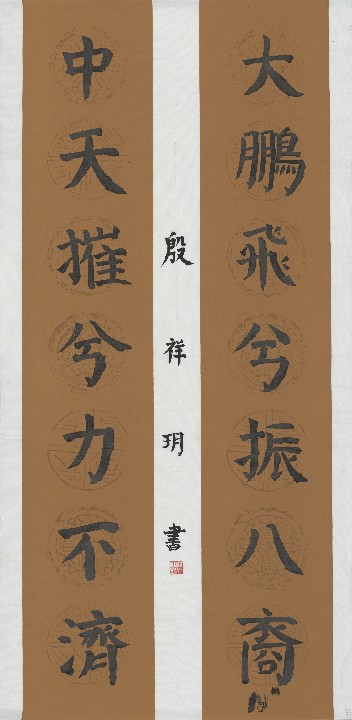 大鵬飛兮振八裔
殷祥玥書
中天摧兮力不濟